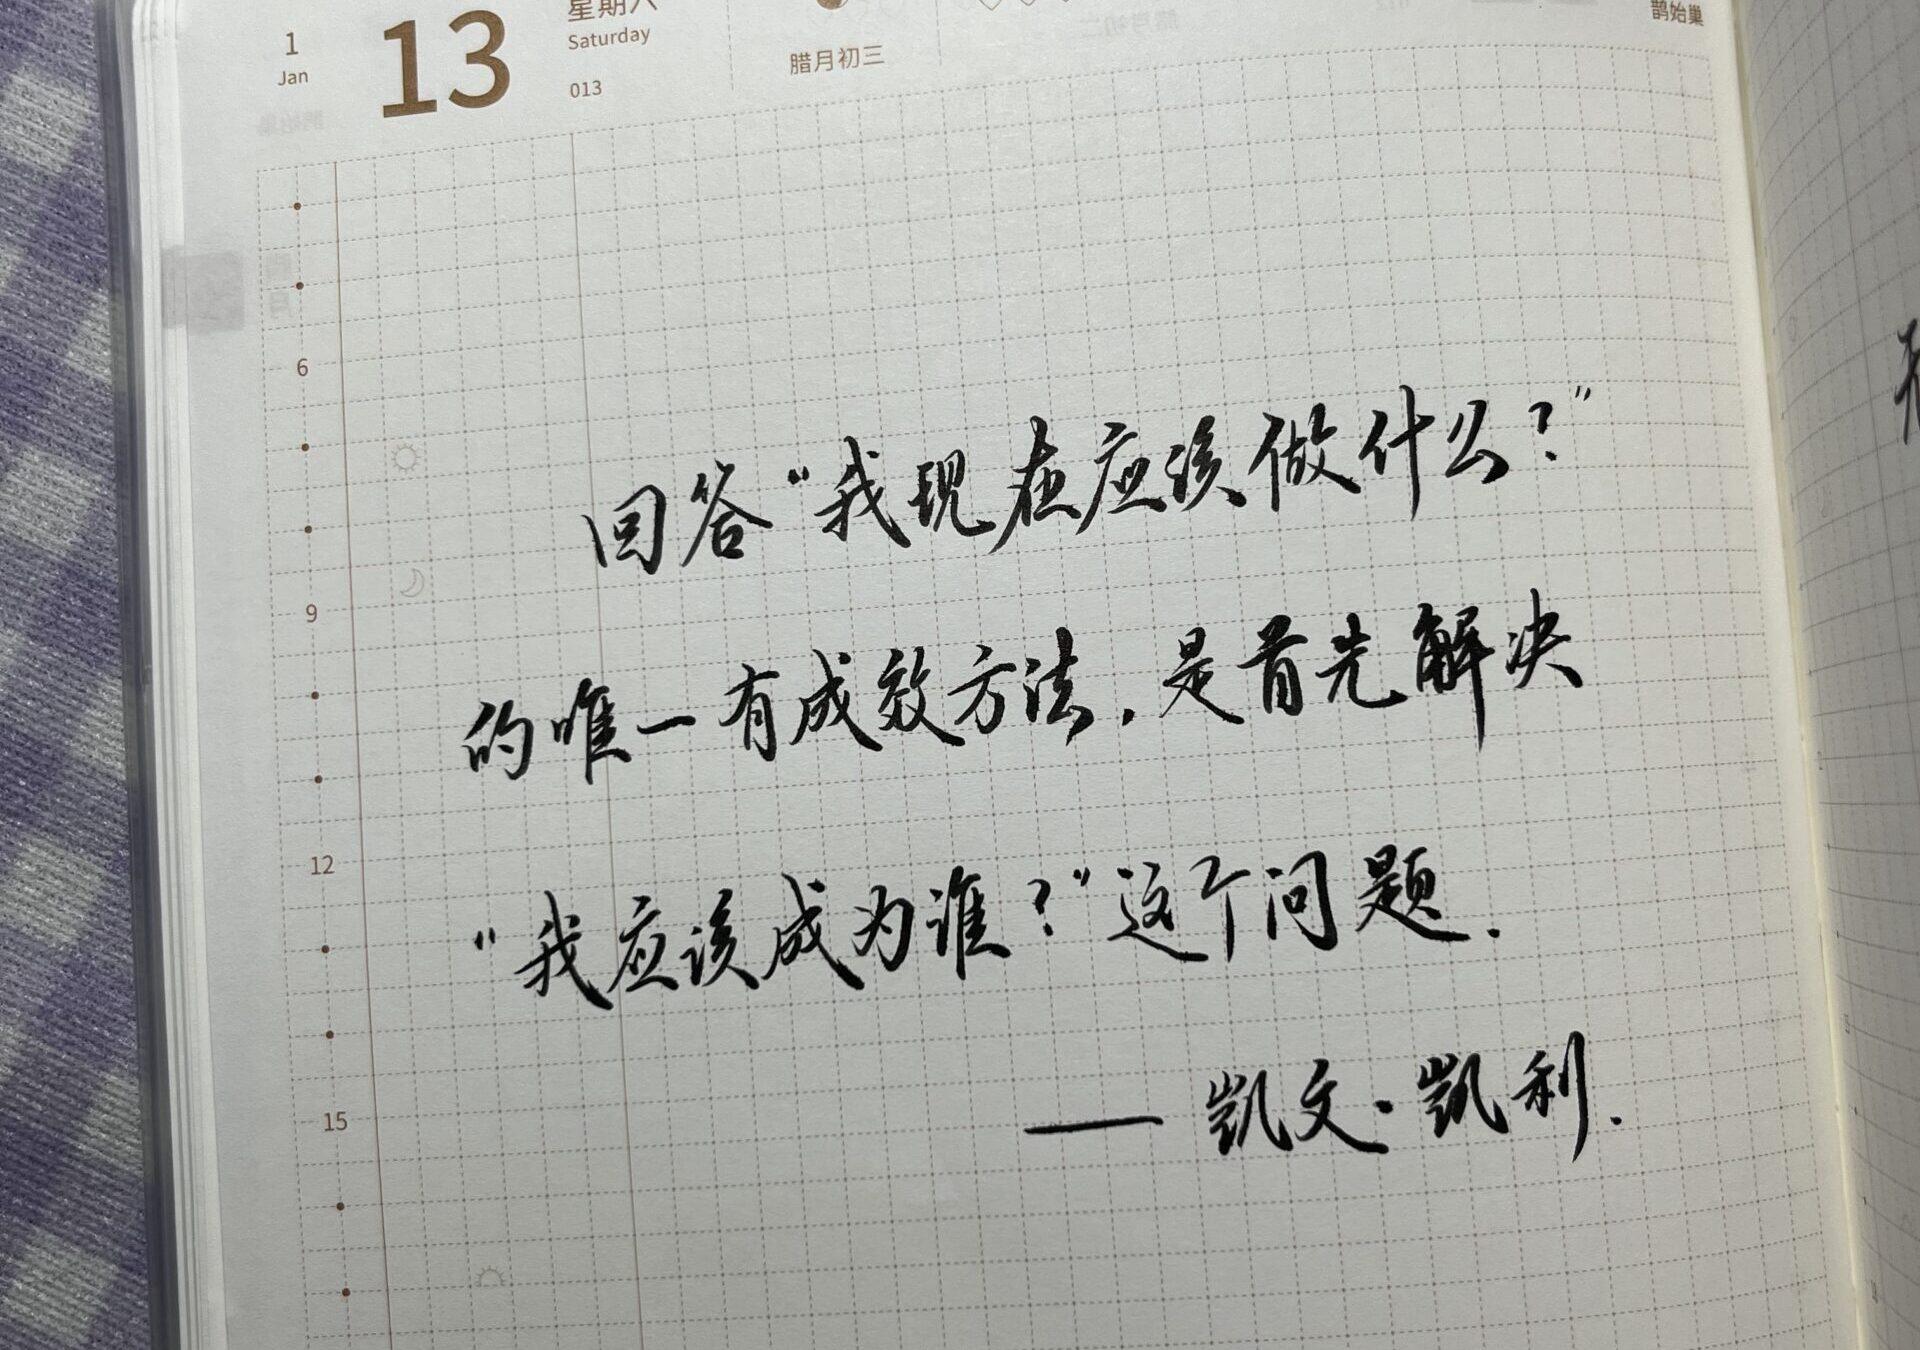 1
Jan
13
星期六
Saturday
013
腊月初三
鹊始巢
6
回答“我现在应该做什么？”
9
的唯一有成效方法，是首先解决
12
“我应该成为谁？”这个问题.
15
—— 凯文·凯利.